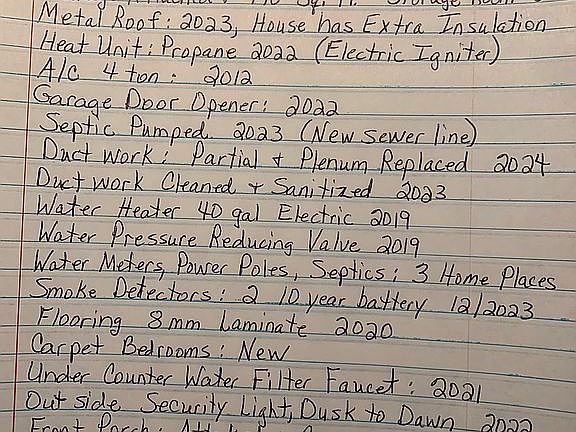 Metal Roof: 2023, House has Extra Insulation
Heat Unit: Propane 2022 (Electric Igniter)
A/C 4 ton: 2012
Garage Door Opener: 2022
Septic Pumped 2023 (New sewer line)
Duct work: Partial + Plenum Replaced 2024
Duct work Cleaned + Sanitized 2023
Water Heater 40 gal Electric 2019
Water Pressure Reducing Valve 2019
Water Meters, Power Poles, Septics: 3 Home Places
Smoke Detectors: 2 10 year battery 12/2023
Flooring 8mm Laminate 2020
Carpet Bedrooms: New
Under Counter Water Filter Faucet: 2021
Out side Security Light, Dusk to Dawn 2022
Front Porch: